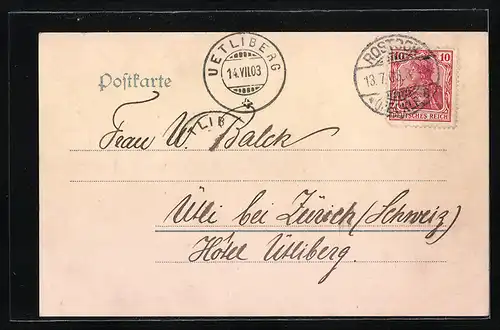 UETLIBERG
14.VII.03
ROSTOCK
13.7.
10
DEUTSCHES REICH
Postkarte
TLIB
Frau W. Balck
Ütli bei Zürich (Schweiz)
Hôtel Ütliberg.